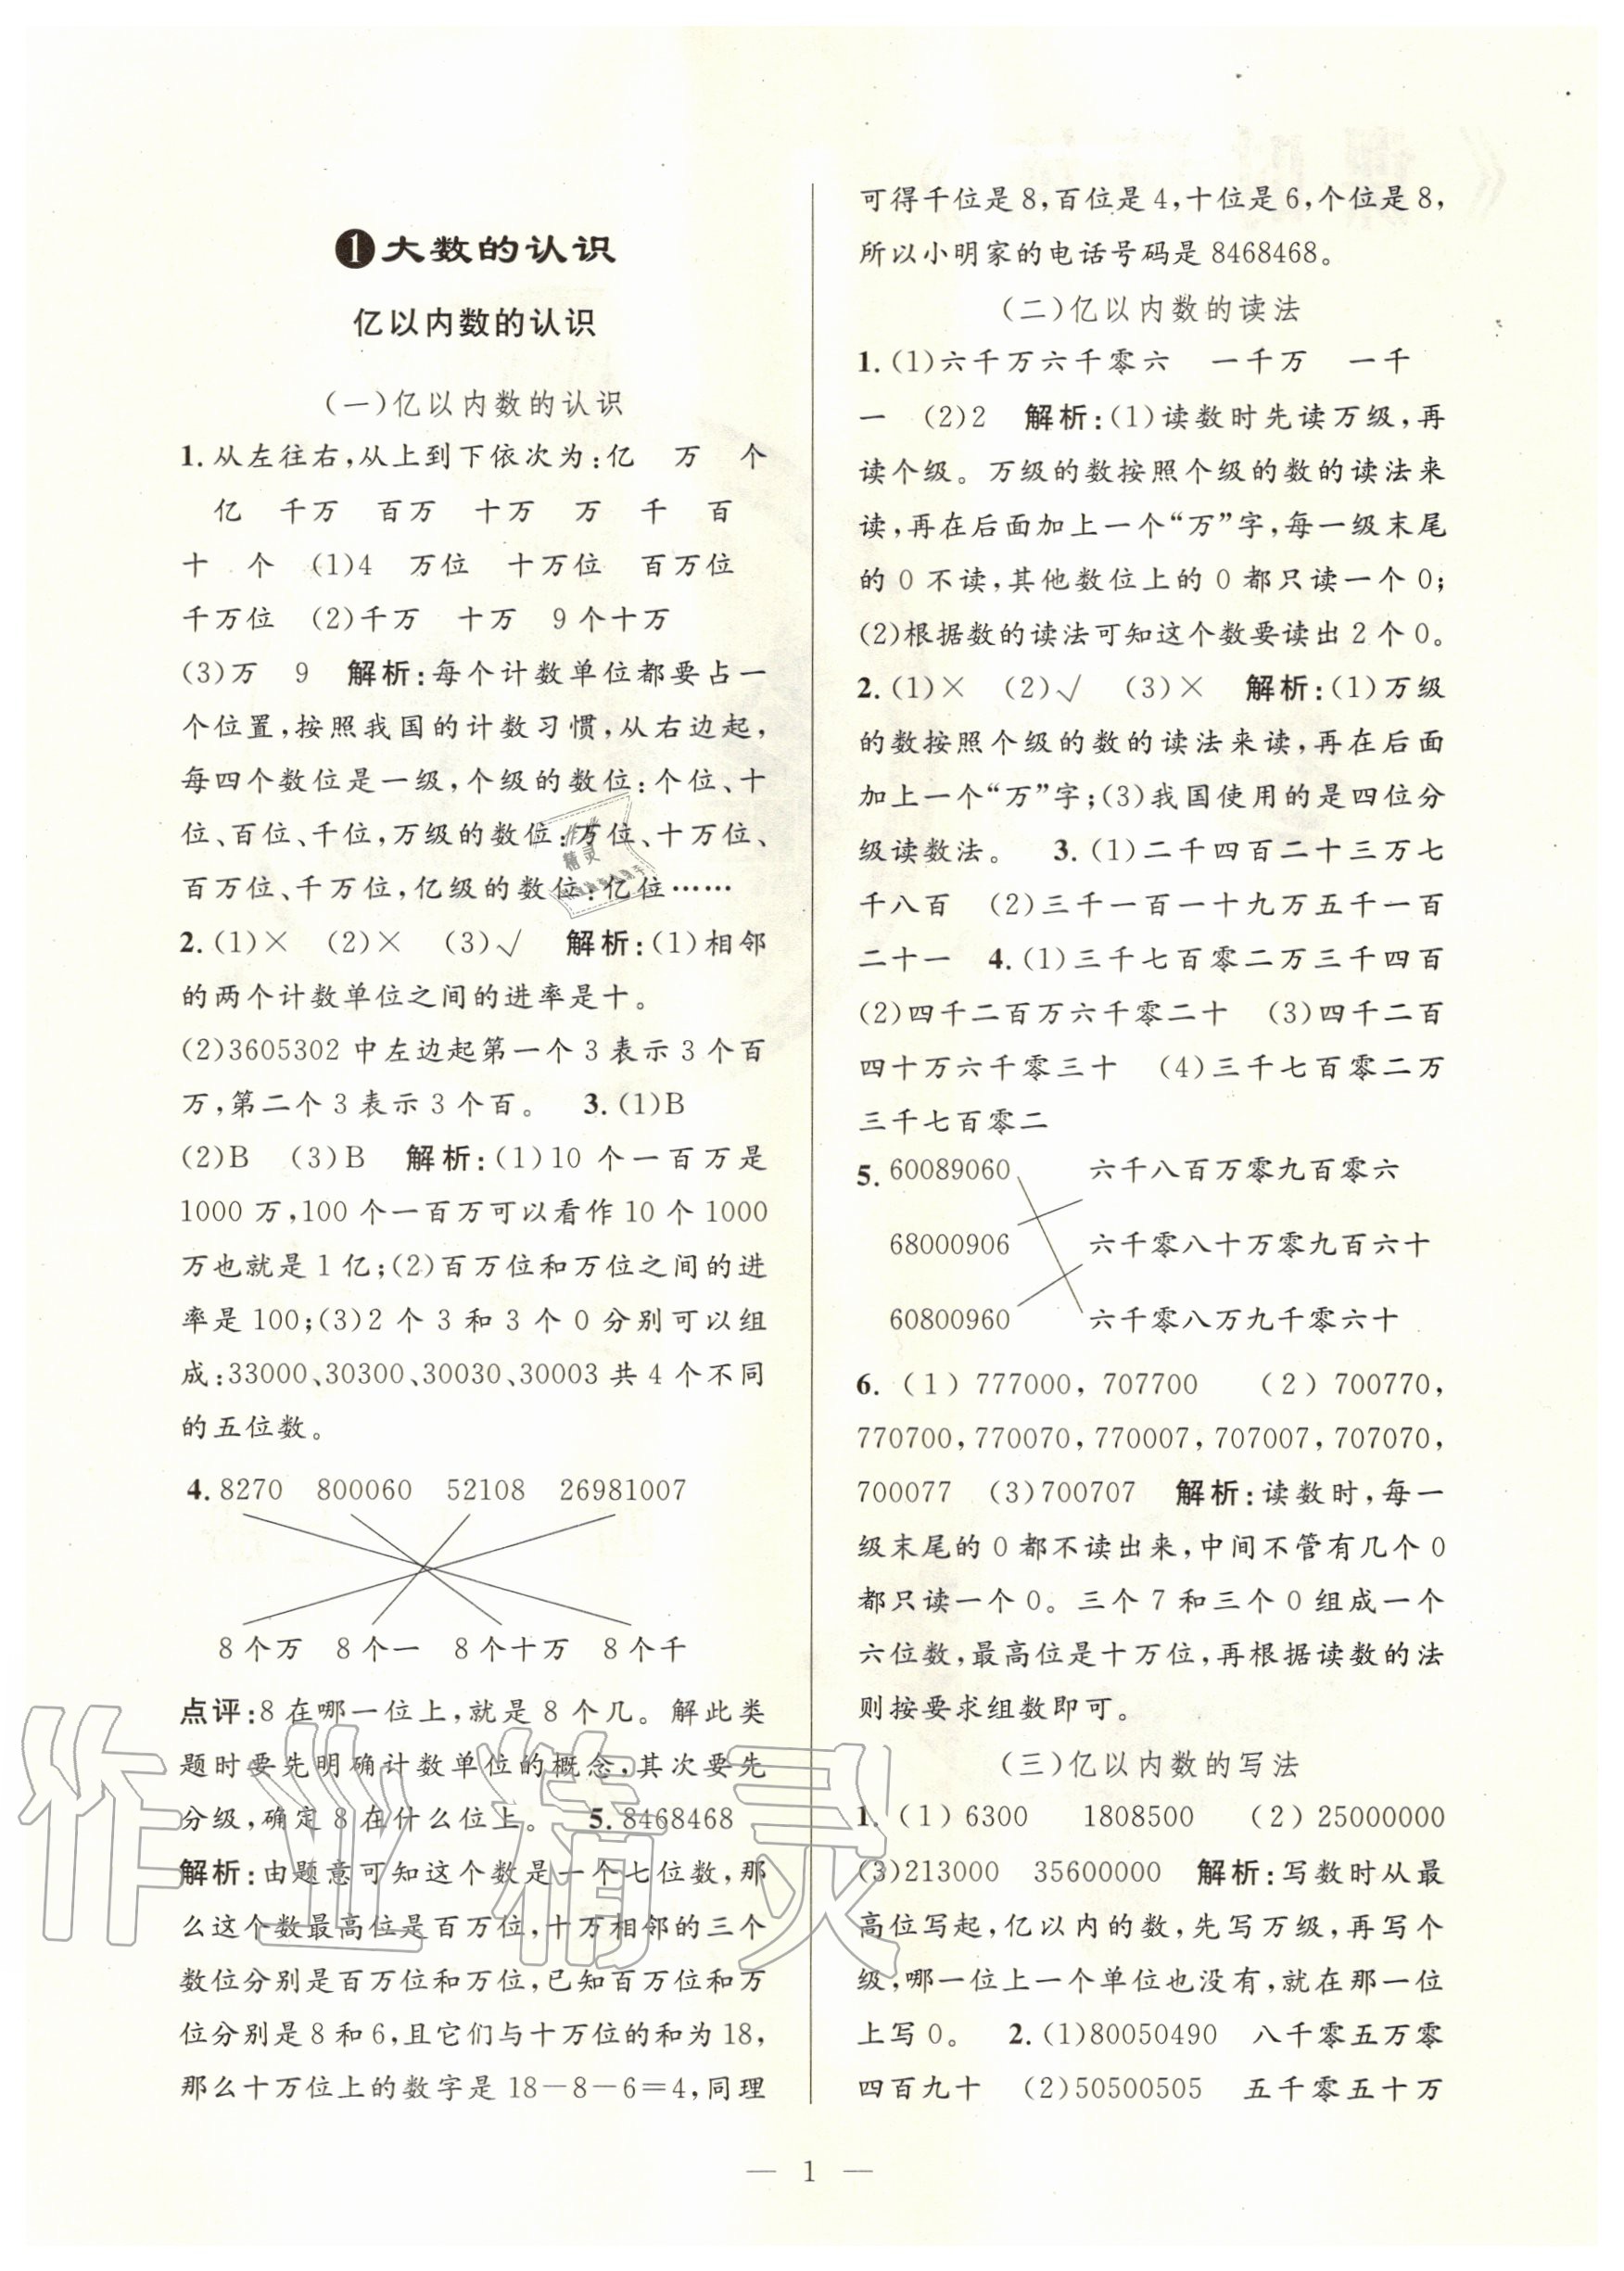 1 大数的认识
亿以内数的认识
(一)亿以内数的认识
1.从左往右,从上到下依次为:亿 万 个
亿 千万 百万 十万 万 千 百
十 个 (1)4 万位 十万位 百万位
千万位 (2)千万 十万 9个十万
(3)万 9 解析:每个计数单位都要占一
个位置,按照我国的计数习惯,从右边起,
每四个数位是一级,个级的数位:个位、十
位、百位、千位,万级的数位:万位、十万位、
百万位、千万位,亿级的数位:亿位……
2.(1)× (2)× (3)√ 解析:(1)相邻
的两个计数单位之间的进率是十。
(2)3605302中左边起第一个3表示3个百
万,第二个3表示3个百。 3.(1)B
(2)B (3)B 解析:(1)10个一百万是
1000万,100个一百万可以看作10个1000
万也就是1亿;(2)百万位和万位之间的进
率是100;(3)2个3和3个0分别可以组
成:33000、30300、30030、30003共4个不同
的五位数。
4.8270 800060 52108 26981007
8个万 8个一 8个十万 8个千
点评:8在哪一位上,就是8个几。解此类
题时要先明确计数单位的概念,其次要先
分级,确定8在什么位上。 5.8468468
解析:由题意可知这个数是一个七位数,那
么这个数最高位是百万位,十万相邻的三个
数位分别是百万位和万位,已知百万位和万
位分别是8和6,且它们与十万位的和为18,
那么十万位上的数字是18-8-6=4,同理
可得千位是8,百位是4,十位是6,个位是8,
所以小明家的电话号码是8468468。
(二)亿以内数的读法
1.(1)六千万六千零六 一千万 一千
一 (2)2 解析:(1)读数时先读万级,再
读个级。万级的数按照个级的数的读法来
读,再在后面加上一个“万”字,每一级末尾
的0不读,其他数位上的0都只读一个0;
(2)根据数的读法可知这个数要读出2个0。
2.(1)× (2)√ (3)× 解析:(1)万级
的数按照个级的数的读法来读,再在后面
加上一个“万”字;(3)我国使用的是四位分
级读数法。 3.(1)二千四百二十三万七
千八百 (2)三千一百一十九万五千一百
二十一 4.(1)三千七百零二万三千四百
(2)四千二百万六千零二十 (3)四千二百
四十万六千零三十 (4)三千七百零二万
三千七百零二
5. 60089060 六千八百万零九百零六
68000906 六千零八十万零九百六十
60800960 六千零八万九千零六十
6.(1)777000,707700 (2)700770,
770700,770070,770007,707007,707070,
700077 (3)700707 解析:读数时,每一
级末尾的0都不读出来,中间不管有几个0
都只读一个0。三个7和三个0组成一个
六位数,最高位是十万位,再根据读数的法
则按要求组数即可。
(三)亿以内数的写法
1.(1)6300 1808500 (2)25000000
(3)213000 35600000 解析:写数时从最
高位写起,亿以内的数,先写万级,再写个
级,哪一位上一个单位也没有,就在那一位
上写0。 2.(1)80050490 八千零五万零
四百九十 (2)50500505 五千零五十万
— 1 —
作业精灵
作业
精灵